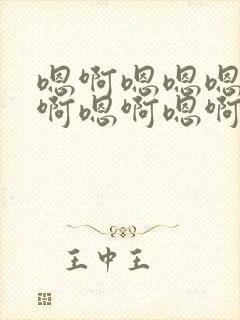 嗯啊嗯嗯嗯
啊嗯啊嗯啊
王中王